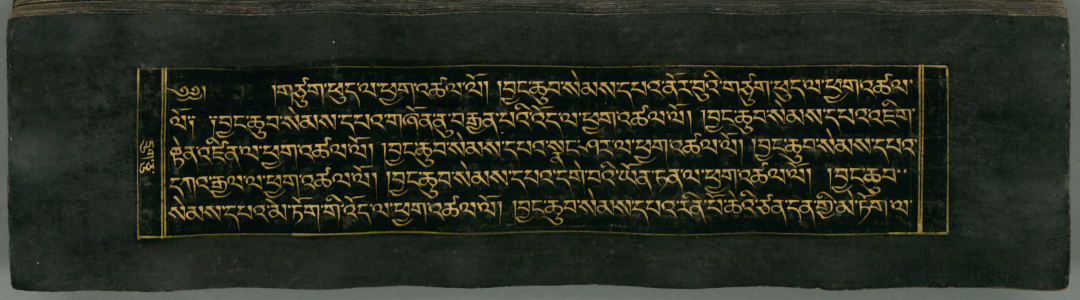 ༄༅། །གཙུག་ཕུད་ལ་ཕྱག་འཚལ་ལོ། །བྱང་ཆུབ་སེམས་དཔའ་ནོར་བུའི་གཙུག་ཕུད་ལ་ཕྱག་འཚལ་
ལོ། །བྱང་ཆུབ་སེམས་དཔའ་གཞོན་ནུ་བརྒྱན་པའི་འོད་ལ་ཕྱག་འཚལ་ལོ། །བྱང་ཆུབ་སེམས་དཔའ་འཇིག་
རྟེན་འཛིན་ལ་ཕྱག་འཚལ་ལོ། །བྱང་ཆུབ་སེམས་དཔའ་སྣང་ལ་ཕྱག་འཚལ་ལོ། །བྱང་ཆུབ་སེམས་དཔའ་
དཀའ་རྒྱལ་ལ་ཕྱག་འཚལ་ལོ། །བྱང་ཆུབ་སེམས་དཔའ་དགེ་བའི་ཡོན་ཏན་ལ་ཕྱག་འཚལ་ལོ། །བྱང་ཆུབ་
སེམས་དཔའ་མེ་ཏོག་གི་འོད་ལ་ཕྱག་འཚལ་ལོ། །བྱང་ཆུབ་སེམས་དཔའ་རིན་པོ་ཆེའི་ཙན་དན་གྱི་མེ་ཏོག་ལ་